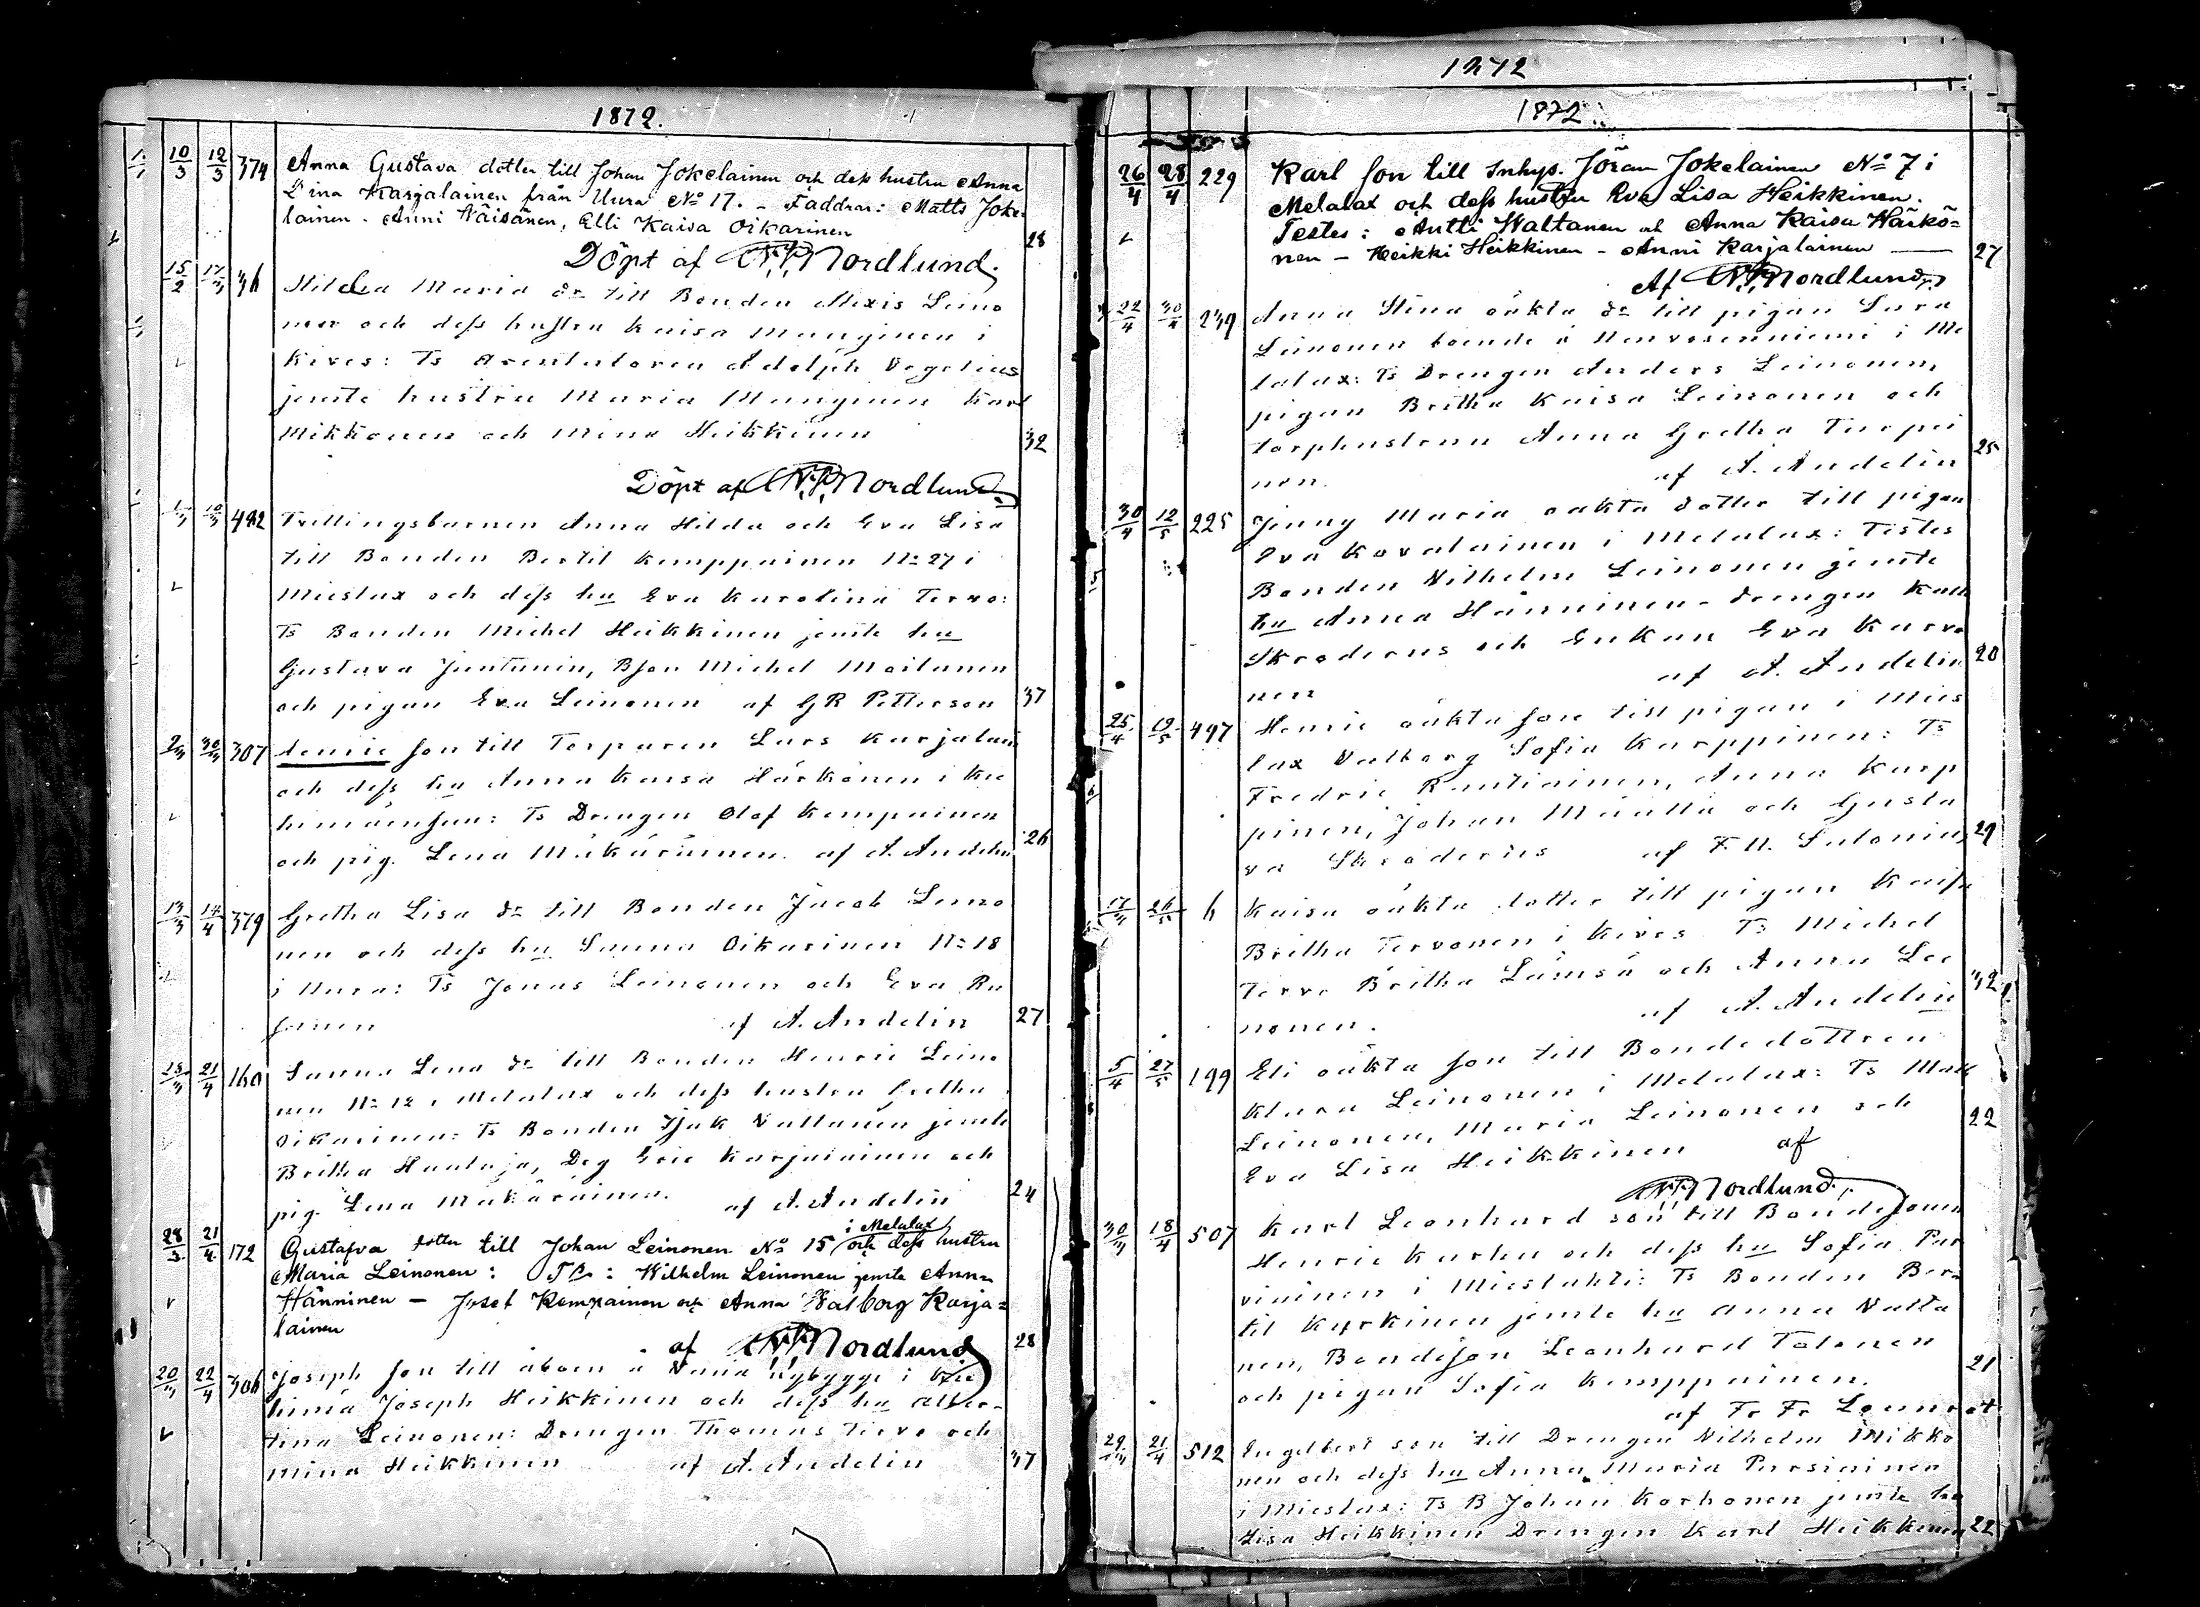 1872.
10/3 12/3 374 Anna Gustava dotter till Johan Jokelainen och dess hustru Anna
Lina Karjalainen från Uura No 17. – Faddrar: Matts Joke-
lainen – Anni Väisänen, Elli Kaisa Oikarinen 28
Döpt af Nordlund
15/2 17/3 36 Hilda Maria dr till Bonden Alexis Leino
nen och dess hustru Kaisa Manginen i
Kives: Ts Arentatoren Adolph Vegelius
jemte hustru Maria Manginen Karl
Mikkonen och Mina Heikkinen 32
Döpt af Nordlund
482 Trillingsbarnen Anna Hilda och Eva Lisa
till Bonden Bertil Kemppainen No 27 i
Mieslax och dess hu Eva Karolina Tervo:
Ts Bonden Michel Heikkinen jemte hu
Gustava Juntunin, Bson Michel Moilanen
och pigan Eva Leinonen af GR Petterson 37
307 Henric son till Torparen Lars Karjalain
och dess hu Anna Kaisa Härkönen i Kie
himäensuu: Ts Drengen Olof Kempainen
och pig. Lena Mäkäräinen. af A. Andelin 26
13/3 14/4 379 Gretha Lisa dr till Bonden Jacob Leino
nen och dess hu Sanna Oikarinen No 18
i Uura: Ts Jonas Leinonen och Eva Ru
sanen af A. Andelin 27
21/4 160 Sanna Lena dr till Bonden Henric Leino
nen No 12 i Melalax och dess hustru Gretha
Oikarinen: Ts Bonden Isak Valtanen jemte
Britha Hautaja, Dzg Eric Karjalainen och
pig. Lena Mäkäräinen. af A. Andelin 24
i Melalax
28/3 21/4 172 Gustafva dotter till Johan Leinonen No 15 och dess hustru
Maria Leinonen: Ts: Wilhelm Leinonen jemte Anna
Hänninen – Josef Kempainen och Anna Walborg Karja=
lainen
af Nordlund 28
20/3 22/4 306 Joseph son till åboen å Vania Nybygge i Kie
himä Joseph Heikkinen och dess hu Alber-
tina Leinonen: Drengen Thomas Tervo och
Mina Heikkinen af A. Andelin 37
1872
1872
26/4 28/4 229 Karl son till Inhys. Jöran Jokelainen No 7 i
Melalax och dess hustru Eva Lisa Heikkinen.
Testes: Antti Waltanen och Anna Kaisa Härkö=
nen – Heikki Heikkinen – Anni Karjalainen 27
Af Nordlund
22/4 30/4 239 Anna Stina oäkta dr till pigan Sara
Leinonen boende å Henvosenniemi i Me
lalax: Ts Drengen Anders Leinonen,
pigan Britha Kaisa Leinonen och
torphustrun Anna Gretha Turpei 25
nen. af A. Andelin
30/4 12/5 225 Jenny Maria oäkta dotter till pigan
Eva Kovalainen i Melalax: Testes
Bonden Vilhelm Leinonen jemte
hu Anna Hänninen – drengen Kall
Skroderus och Enkan Eva Karvo 20
nen af A. Andelin
25/4 19/5 497 Henric oäkta son till pigan i Mies
lax Valborg Sofia Karppinen: Ts
Fredric Rautiainen, Anna Karp
pinen, Johan Määttä och Gusta
va Skroderus af F. H. Salonius 29
6 Kaisa oäkta dotter till pigan Kaisa
Britha Tervonen i Kives. Ts Michel
Tervo Britha Lämsä och Anna Lei 32
nonen. af A. Andelin
5/4 27/5 199 Eli oäkta son till Bondedottren
Klara Leinonen i Melalax: Ts Matts
Leinonen, Maria Leinonen och 22
Eva Lisa Heikkinen af
Nordlund
30/3 18/4 507 Karl Leonhard son till Bondesonen
Henric Karhu och dess hu Sofia Par
viainen i Mieslahti: Ts Bonden Ber
til Kyrkinen jemte hu Anna Valta
nen, Bondeson Leonhard Tolonen 21
och pigan Sofia Kemppainen.
af Fr Fr Lönnrot
29/3 21/4 512 Engelbert son till Drengen Vilhelm Mikko
nen och dess hu Anna Maria Pursiainen
i Mieslax: Ts B Johan Korhonen jemte hu
Lisa Heikkinen Drengen Karl Heikkinen 22